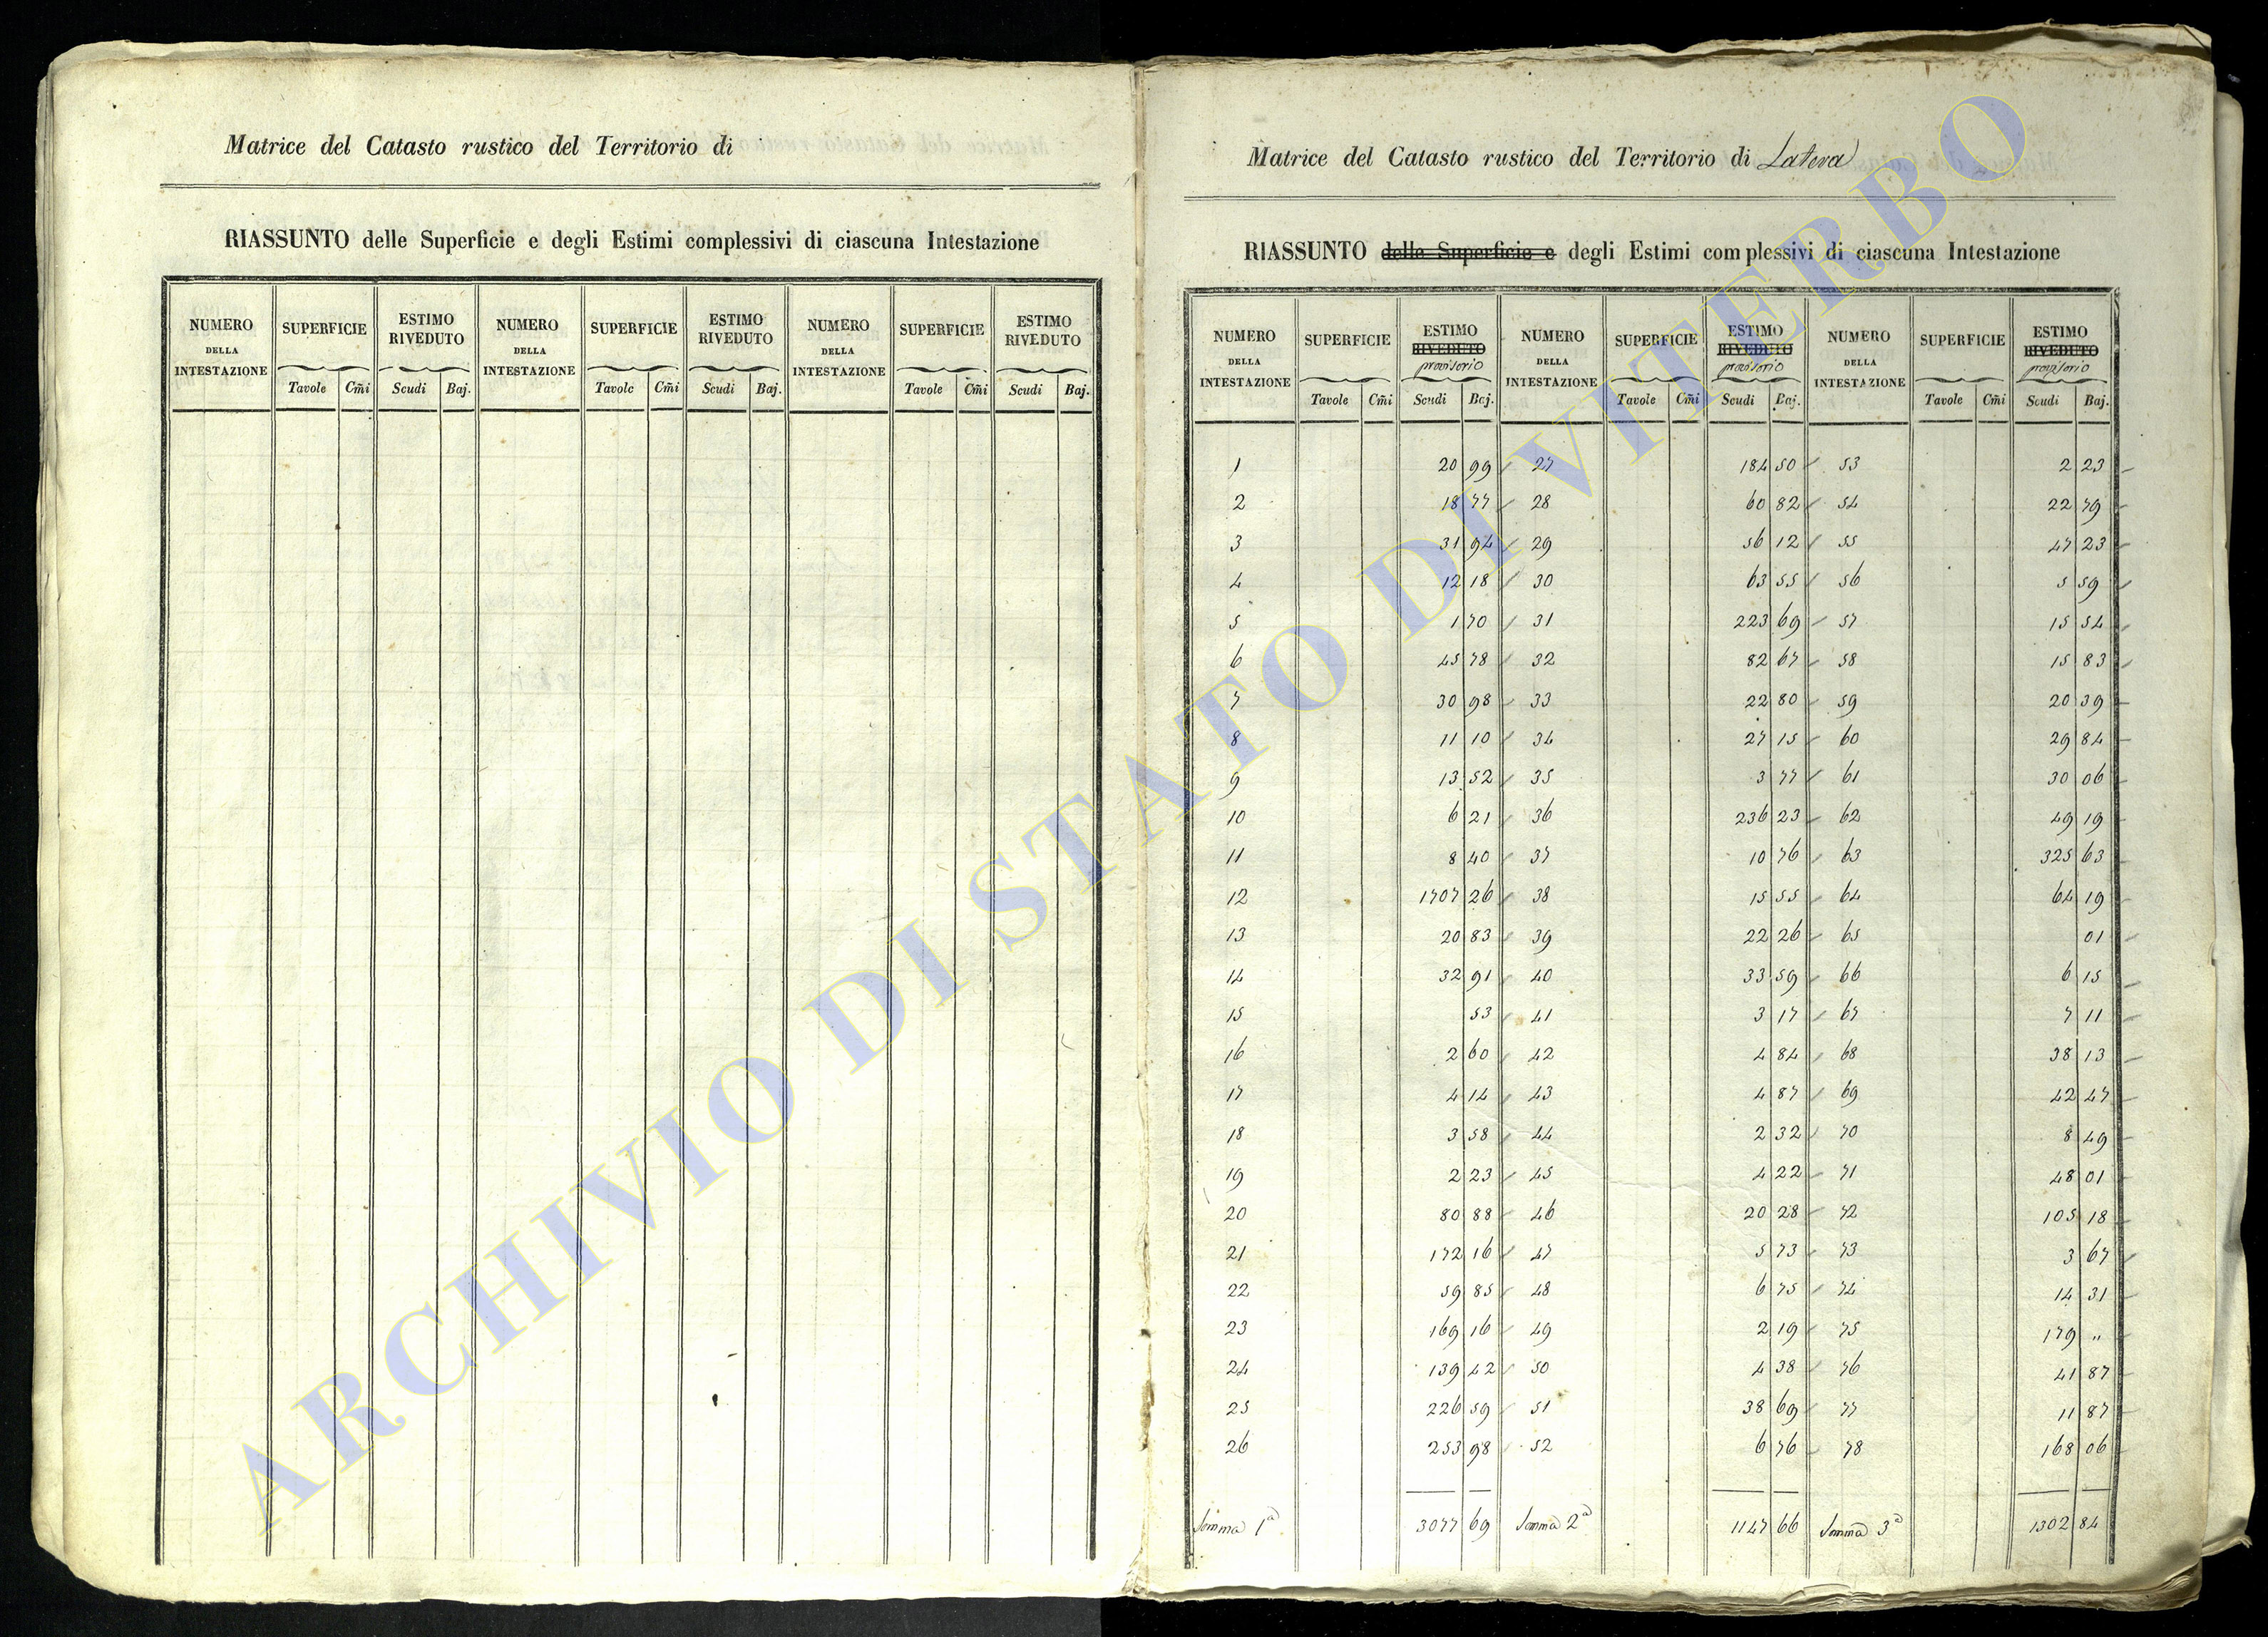 Matrice del Catasto rustico del Territorio di
RIASSUNTO delle Superficie e degli Estimi complessivi di ciascuna Intestazione
NUMERO DELLA INTESTAZIONE SUPERFICIE ESTIMO RIVEDUTO NUMERO DELLA INTESTAZIONE SUPERFICIE ESTIMO RIVEDUTO NUMERO DELLA INTESTAZIONE SUPERFICIE ESTIMO RIVEDUTO
Tavole Cm̃i Scudi Baj. Tavole Cm̃i Scudi Baj. Tavole Cm̃i Scudi Baj.
Matrice del Catasto rustico del Territorio di Latera
RIASSUNTO delle Superficie e degli Estimi complessivi di ciascuna Intestazione
NUMERO DELLA INTESTAZIONE SUPERFICIE ESTIMO RIVEDUTO provisorio NUMERO DELLA INTESTAZIONE SUPERFICIE ESTIMO RIVEDUTO provisorio NUMERO DELLA INTESTAZIONE SUPERFICIE ESTIMO RIVEDUTO provisorio
Tavole Cm̃i Scudi Baj. Tavole Cm̃i Scudi Baj. Tavole Cm̃i Scudi Baj.
1 20 99 27 184 50 53 2 23
2 18 77 28 60 82 54 22 79
3 31 94 29 56 12 55 47 23
4 12 18 30 63 55 56 5 59
5 1 70 31 223 69 57 15 54
6 45 78 32 82 67 58 15 83
7 30 98 33 22 80 59 20 39
8 11 10 34 27 15 60 29 84
9 13 52 35 3 77 61 30 06
10 6 21 36 236 23 62 49 19
11 8 40 37 10 76 63 325 63
12 1707 26 38 15 55 64 64 19
13 20 83 39 22 26 65 01
14 32 91 40 33 59 66 6 15
15 53 41 3 17 67 7 11
16 2 60 42 4 84 68 38 13
17 4 14 43 4 87 69 42 47
18 3 58 44 2 32 70 8 49
19 2 23 45 4 22 71 48 01
20 80 88 46 20 28 72 105 18
21 172 16 47 5 73 73 3 67
22 59 85 48 6 75 74 14 31
23 169 16 49 2 19 75 179 "
24 139 42 50 4 38 76 41 87
25 226 59 51 38 69 77 11 87
26 253 98 52 6 76 78 168 06
Somma 1ª 3077 69 Somma 2ª 1147 66 Somma 3ª 1302 84
ARCHIVIO DI STATO DI VITERBO